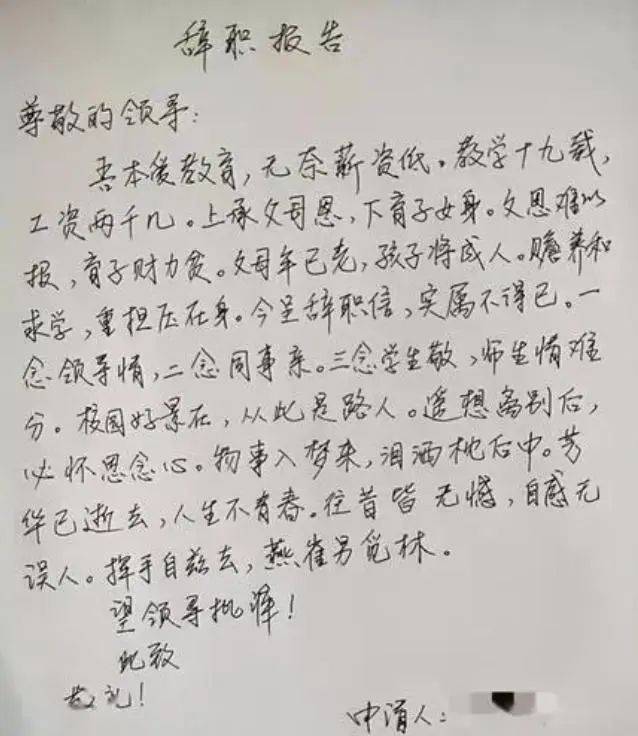 辞职报告
尊敬的领导:
吾本爱教育,无奈薪资低。教学十九载,
工资两千几。上承父母恩,下育子女身。父恩难以
报,育子财力贫。父母年已老,孩子将成人。赡养和
求学,重担压在身。今呈辞职信,实属不得已。一
念领导情,二念同事亲。三念学生敬,师生情难
分。校园好景在,从此是路人。遥想离别后,
必怀思念心。物事入梦来,泪洒枕石中。芳
华已逝去,人生不有春。往昔皆无憾,自感无
误人。挥手自兹去,燕雀另觅林。
望领导批准!
此致
敬礼!
申请人: